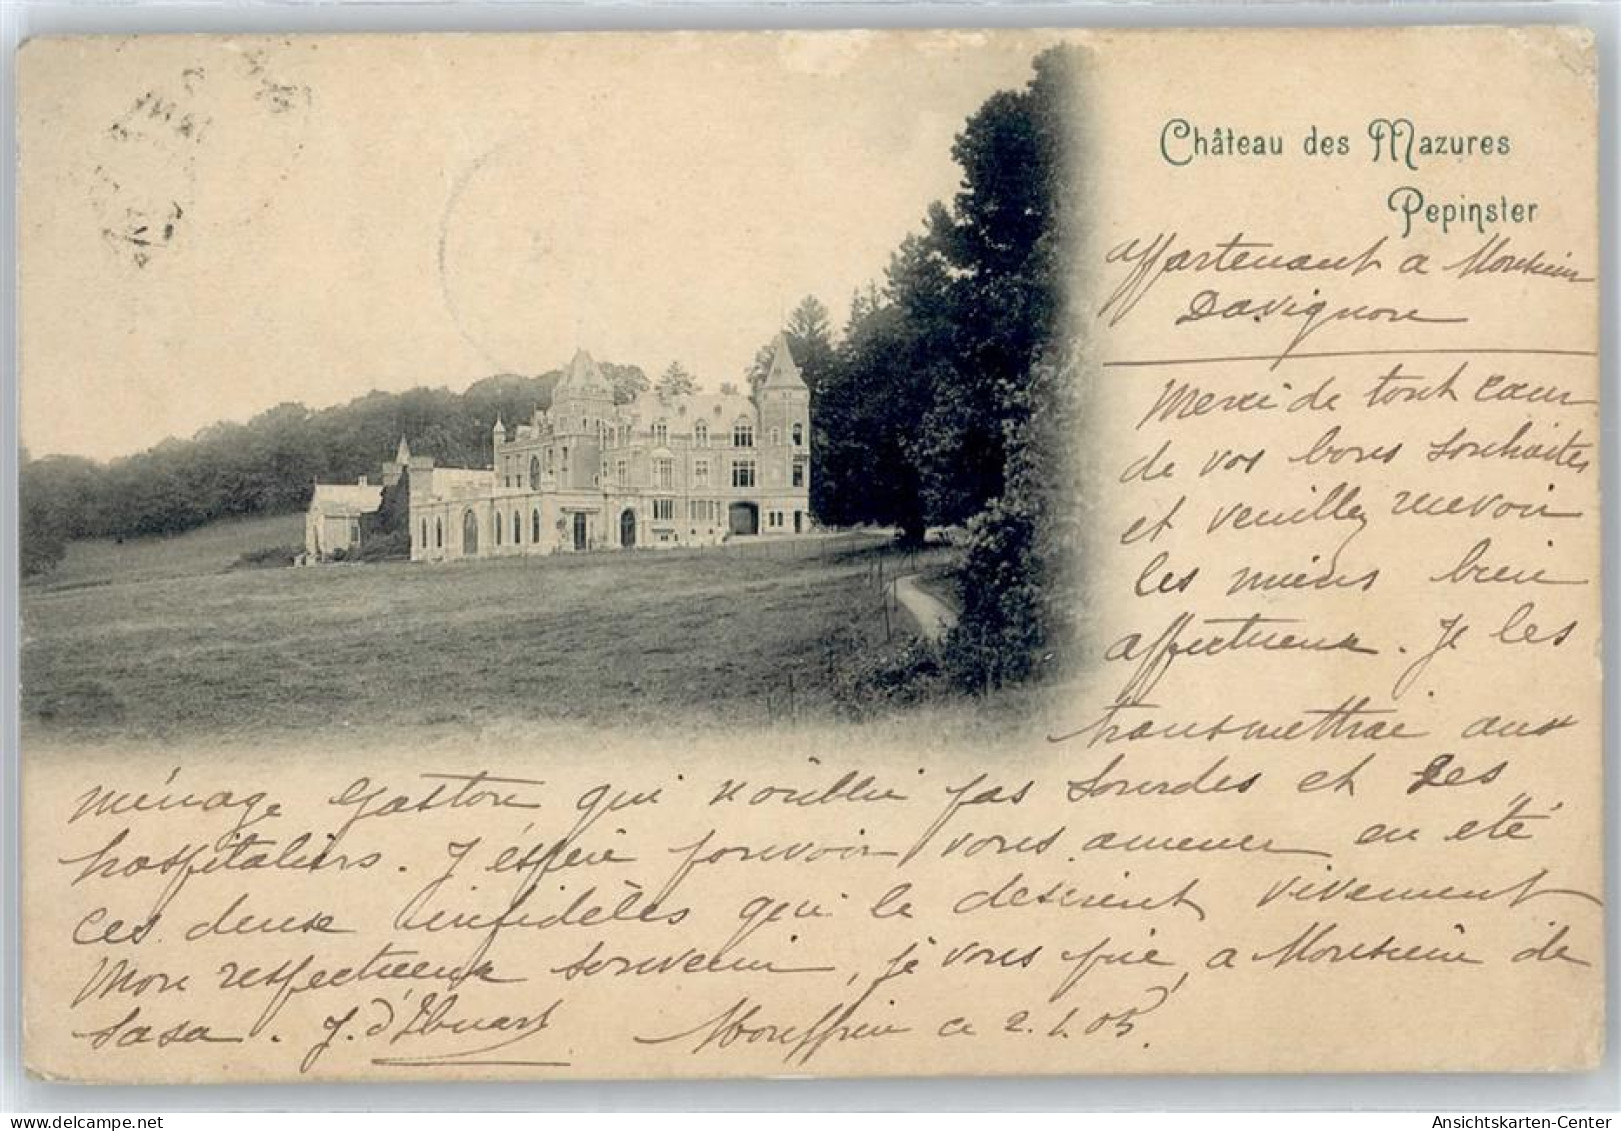 Château des Mazures
Pepinster
appartenant a Monsieur
Davignon
Merci de tout cœur
de vos bons souhaits
et veuillez recevoir
les miens bien
affectueux. Je les
transmettrai aux
ménage Gaston qui n'oublie pas Lourdes et Les
hospitaliers. J'éspère pouvoir vous amener en été
ces deux infidèles qui le desirent vivement
Mon respectueux souvenir, je vous prie, a Monsieur de
J. d'
ce 2.1.05
Ansichtskarten-Center